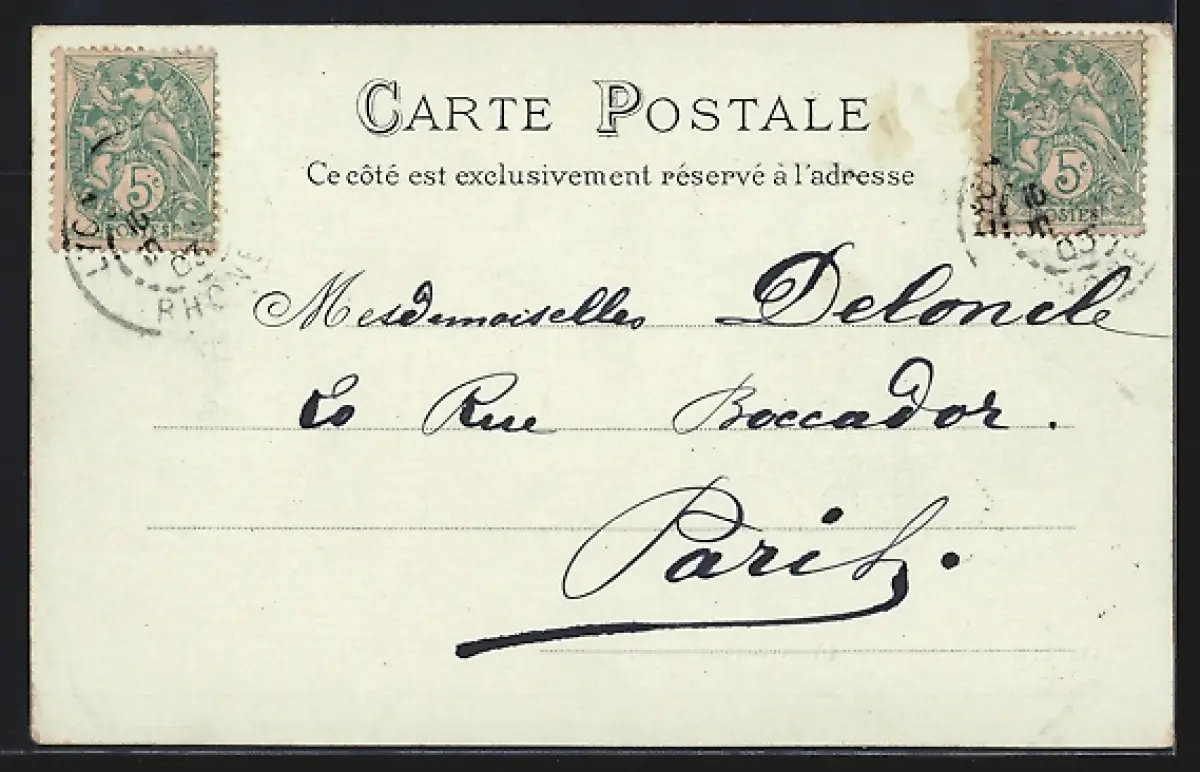 CARTE POSTALE
Ce côté est exclusivement réservé à l'adresse
5c
POSTES
5c
POSTES
RHONE
03
03
Mesdemoiselles Deloncle
Rue Boccador.
Paris.